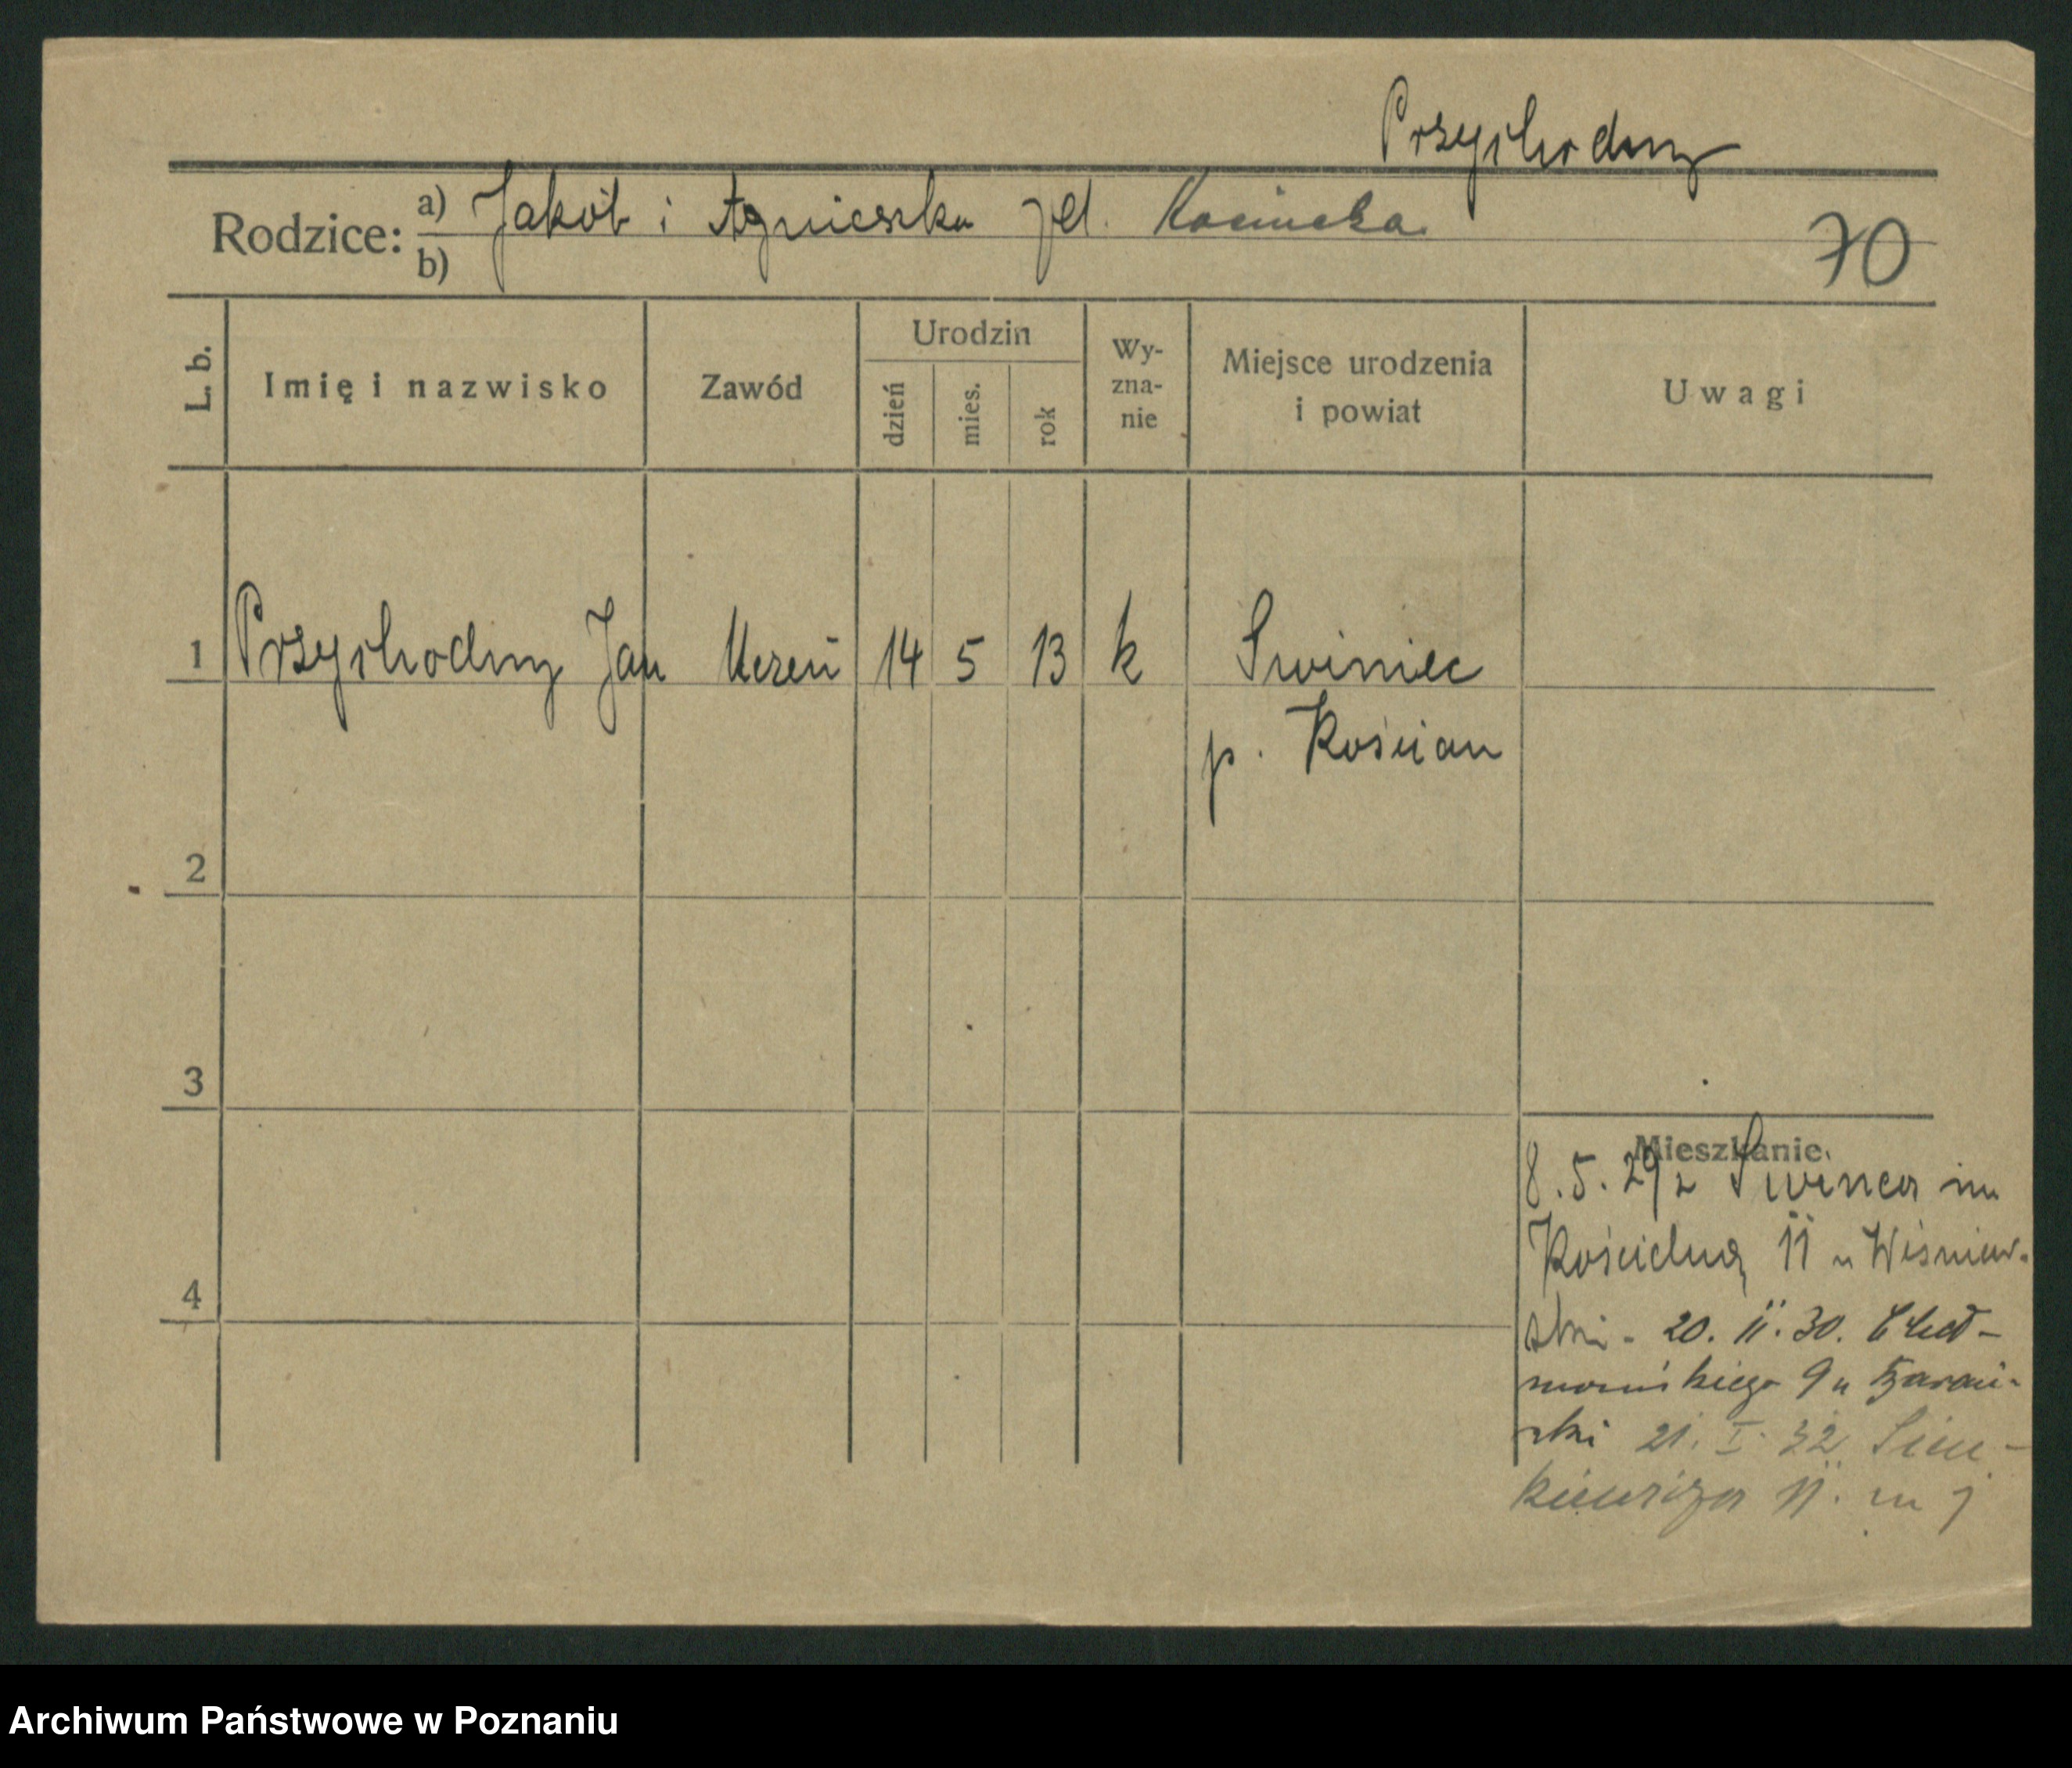 Przychodny
Rodzice: a) Jakób i Agnieszka zd. Kosińska
b)
70
L. b.
Imię i nazwisko
Zawód
Urodzin
dzień
mies.
rok
Wy-
zna-
nie
Miejsce urodzenia
i powiat
Uwagi
1 Przychodny Jan Uczeń 14 5 13 k Świniec
p. Kościan
2
3
4
Mieszkanie.
8.5.29 z Świńca na
Kościelną 11 u Wiśniew-
ski - 20. II. 30. Cheł-
mońskiego 9 u
ski 21. I. 32 Sien-
kiewicza 11. m
Archiwum Państwowe w Poznaniu